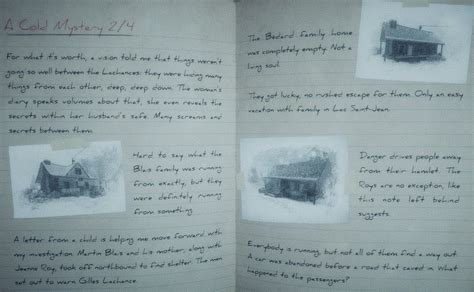 A Cold Mystery 2/4
For what it's worth, a vision told me that things weren't
going so well between the Lachances: they were hiding many
things from each other, deep, deep down. The woman's
diary speaks volumes about that, she even reveals the
secrets within her husband's safe. Many screams and
secrets between them.
Hard to say what the
Blais family was running
from exactly, but they
were definitely running
from something.
A letter from a child is helping me move forward with
my investigation. Martin Blais and his mother, along with
Jeanne Roy, took off northbound to find shelter. The men
set out to warn Gilles Lachance.
The Bedard family home
was completely empty. Not a
living soul.
They got lucky, no rushed escape for them. Only an easy
vacation with family in Lac Saint-Jean.
Danger drives people away
from their hamlet. The
Roys are no exception, like
this note left behind
suggests.
Everybody is running, but not all of them find a way out.
A car was abandoned before a road that caved in. What
happened to the passengers?